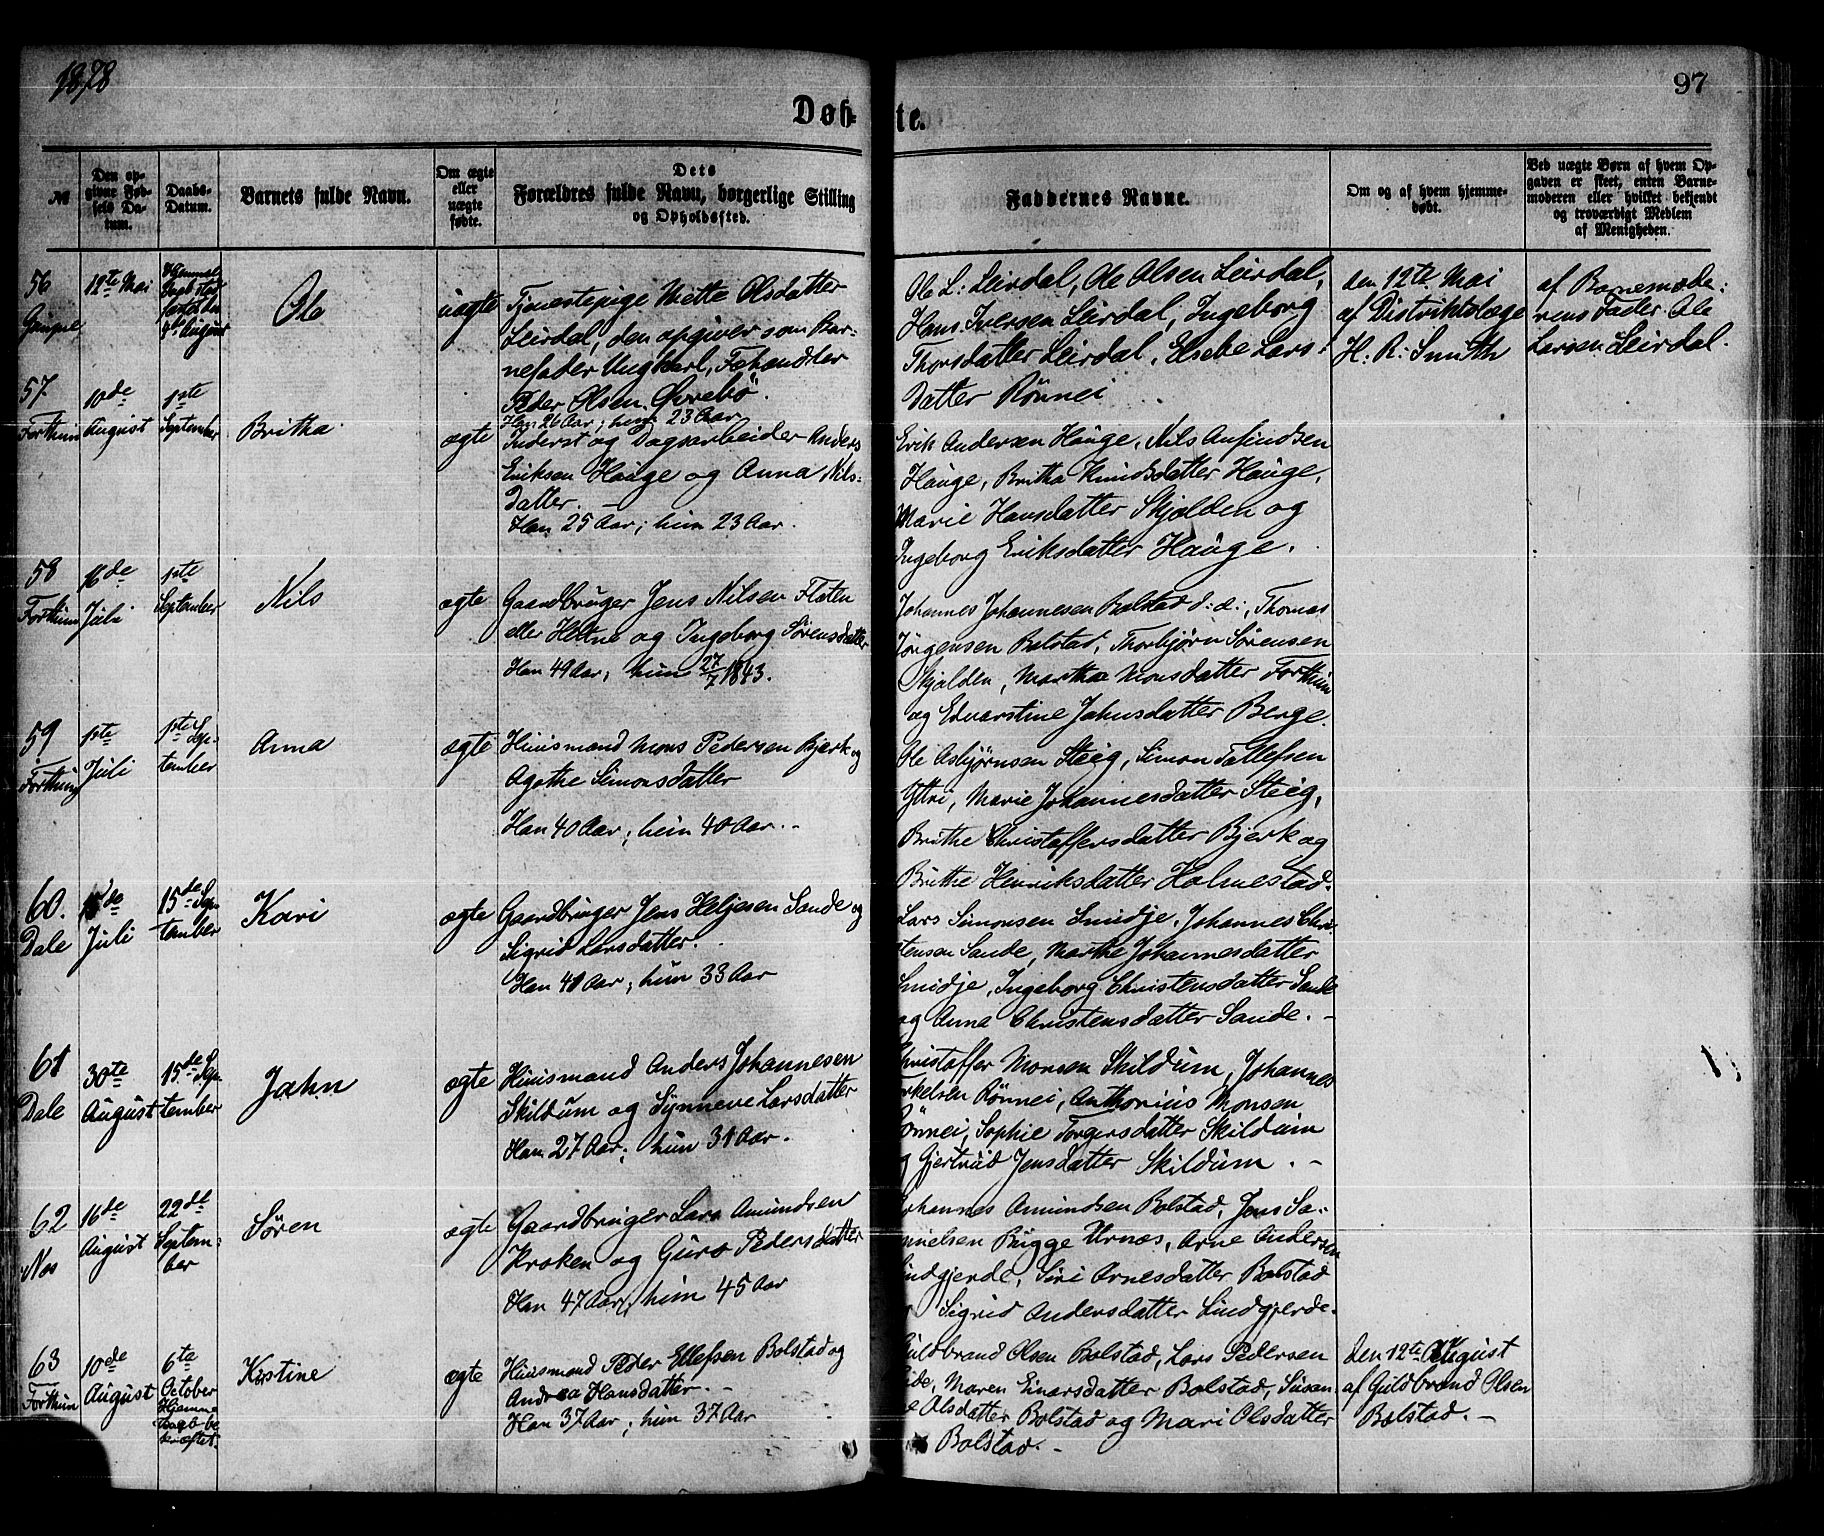 1878
97
Døb-
te.
№
Den op-
givne Fød-
sels Da-
tum.
Daabs-
Datum.
Barnets fulde Navn.
Om ægte
eller
uægte
fødte.
Dets
Forældres fulde Navn, borgerlige Stilling
og Opholdssted.
Faddernes Navne.
Om og af hvem hjemme-
døbt.
Ved uægte Børn af hvem Op-
gaven er skeet, enten Barne-
moderen eller hvilket bekjendt
og troværdigt Medlem
af Menigheden.
56
12te Mai
August
Ole
uægte
Tjenestepige Mette Olsdatter
Leirdal, den opgiver som Bar-
nefader Ungkarl, Fehandler
Peder Olsen Øvrebö.
Han 26 Aar; hun 23 Aar
Ole L: Leirdal, Ole Olsen Leirdal,
Hans Iversen Leirdal, Ingeborg
Thorsdatter Leirdal, Elsebe Lars-
datter Rönnei
den 12te Mai
af Distriktslæge
H. R. Smith
af Barnemode-
rens Fader Ole
Larsen Leirdal.
57
Forthun
10de
August
1ste
September
Britha
ægte
Inderst og Dagsarbeider Anders
Eriksen Hauge og Anna Nils-
datter. -
Han 25 Aar; hun 23 Aar.
Erik Andersen Hauge, Nils Anfindsen
Hauge, Britha Knudsdatter Hauge,
Marie Hansdatter Skjolden og
Ingeborg Eriksdatter Hauge.
58
Forthun
16de
Juli
1ste
September
Nils
ægte
Gaardbruger Jens Nilsen Flaten
eller Hettne og Ingeborg Sørensdatter
Han 49 Aar; hun 27/7 1843.
Johannes Johannesen Bolstad d: æ:, Thomas
Jörgensen Bolstad, Thorbjørn Sørensen
Skjolden, Martha Monsdatter Forthun
og Edvarstine Johnsdatter Berge.
59
Forthun
1ste
Juli
1ste Sep-
tember
Anna
ægte
Huusmand Mons Pedersen Bjerk og
Agathe Simonsdatter
Han 40 Aar; hun 40 Aar. -
Ole Asbjørnsen Steig, Simon Tollefsen
Yttri, Marie Johannesdatter Steig,
Brithe Christoffersdatter Bjerk og
Brithe Henriksdatter Holmestad.
60.
Dale
Juli
15de Sep-
tember
Kari
ægte
Gaardbruger Jens Heljesen Sande og
Sigrid Larsdatter.
Han 41 Aar; hun 33 Aar
Lars Simonsen Smidje, Johannes Chri-
stensen Sande, Marthe Johannesdatter
Smidje, Ingeborg Christensdatter Sande
og Anna Christensdatter Sande. -
61
Dale
30te
August
15de Sep-
tember
John
ægte
Huusmand Anders Johannesen
Skildum og Synneve Larsdatter
Han 27 Aar; hun 31 Aar.
Christoffer Monsen Skildum, Johannes
Torkelsen Rönnei, Anthonius Monsen
Rönnei, Sophie Torgersdatter Skildum
og Gjertrud Jensdatter Skildum. -
62
Nes
16de
August
22de
Septem-
ber
Sören
ægte
Gaardbruger Lars Amundsen
Kroken og Guro Pedersdatter
Han 47 Aar; hun 45 Aar
Johannes Amundsen Bolstad, Jens Sa-
muelsen Bugge Urnæs, Arne Andersen
Lindgjerde, Siri Arnesdatter Bolstad
Sigrid Andersdatter Lindgjerde.
63
Forthun
10de
August
6te
October
Hjemme-
daab be-
kræftet.
Kristine
ægte
Huusmand Peder Ellefsen Bolstad og
Andrea Hansdatter. -
Han 37 Aar; hun 37 Aar
Guldbrand Olsen Bolstad, Lars Pedersen
Eide, Maren Einarsdatter Bolstad, Susan-
ne Olsdatter Bolstad og Mari Olsdatter
Bolstad. -
Den 12te August
af Guldbrand Olsen
Bolstad. -